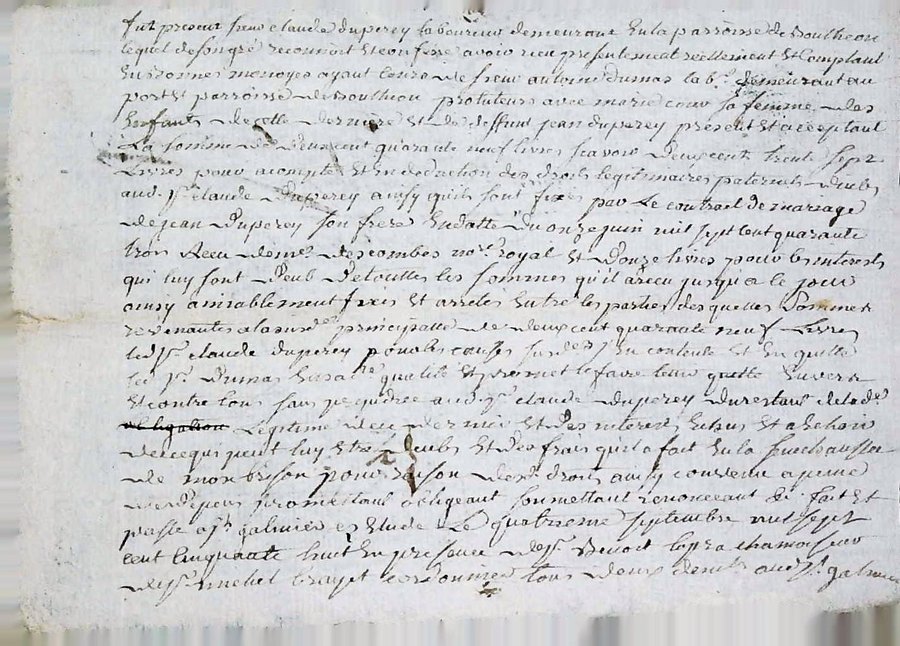 fut present sieur claude duperey laboureur demeurant en la parroisse de boutheon
lequel de son gré reconnoit et confesse avoir receu presentement reellement et comptant
en bonnes monoyes ayant cours de sieur antoine dumas lab.r demeurant au
port et parroisse de boutheon protuteur avec marie sa femme des
enfants de cette derniere et de deffunt jean duperey present et acceptant
La somme de deux cent quarante neuf livres scavoir deux cent trente sept
Livres pour acompte et en deduction des droits legitimaires paternels deubs
aud. s.r claude duperey ainsy quils sont fixés par Le contrail de mariage
de jean duperey son frere en datte du onze juin mil sept cent quarante
trois receu de m.e descombes no.re royal et douze livres pour les interests
qui luy sont deub de touttes les sommes qu'il a receu jusqu'a ce jour
ainsy amiablement fixés et arretés entre les parties desquelles sommes
revenantes a la susd.e principalle de deux cent quarante neuf Livres
led. s.r claude duperey pour les causes susd. en contente et en quitte
led. s.r dumas en sad.e qualité et promet le faire tenir quitte envers
et contre tous sans prejudice aud. s.r claude duperey du restant de lad.e
obligation Legitime et des interests echus et a echoir
de ce qui peut luy etre deubs et des frais qu'il a fait en la senechaussée
de monbrison pour raison desd. droits ainsy convenu a peine
de depens promettant obligeant soumettant renonceant &c. fait et
passé a s.t galmier etude Le quatrieme septembre mil sept
cent cinquante huit en presence de s.r benoit chamoiseur
de s.r michel cordonnier tous deux dud. s.t galmier